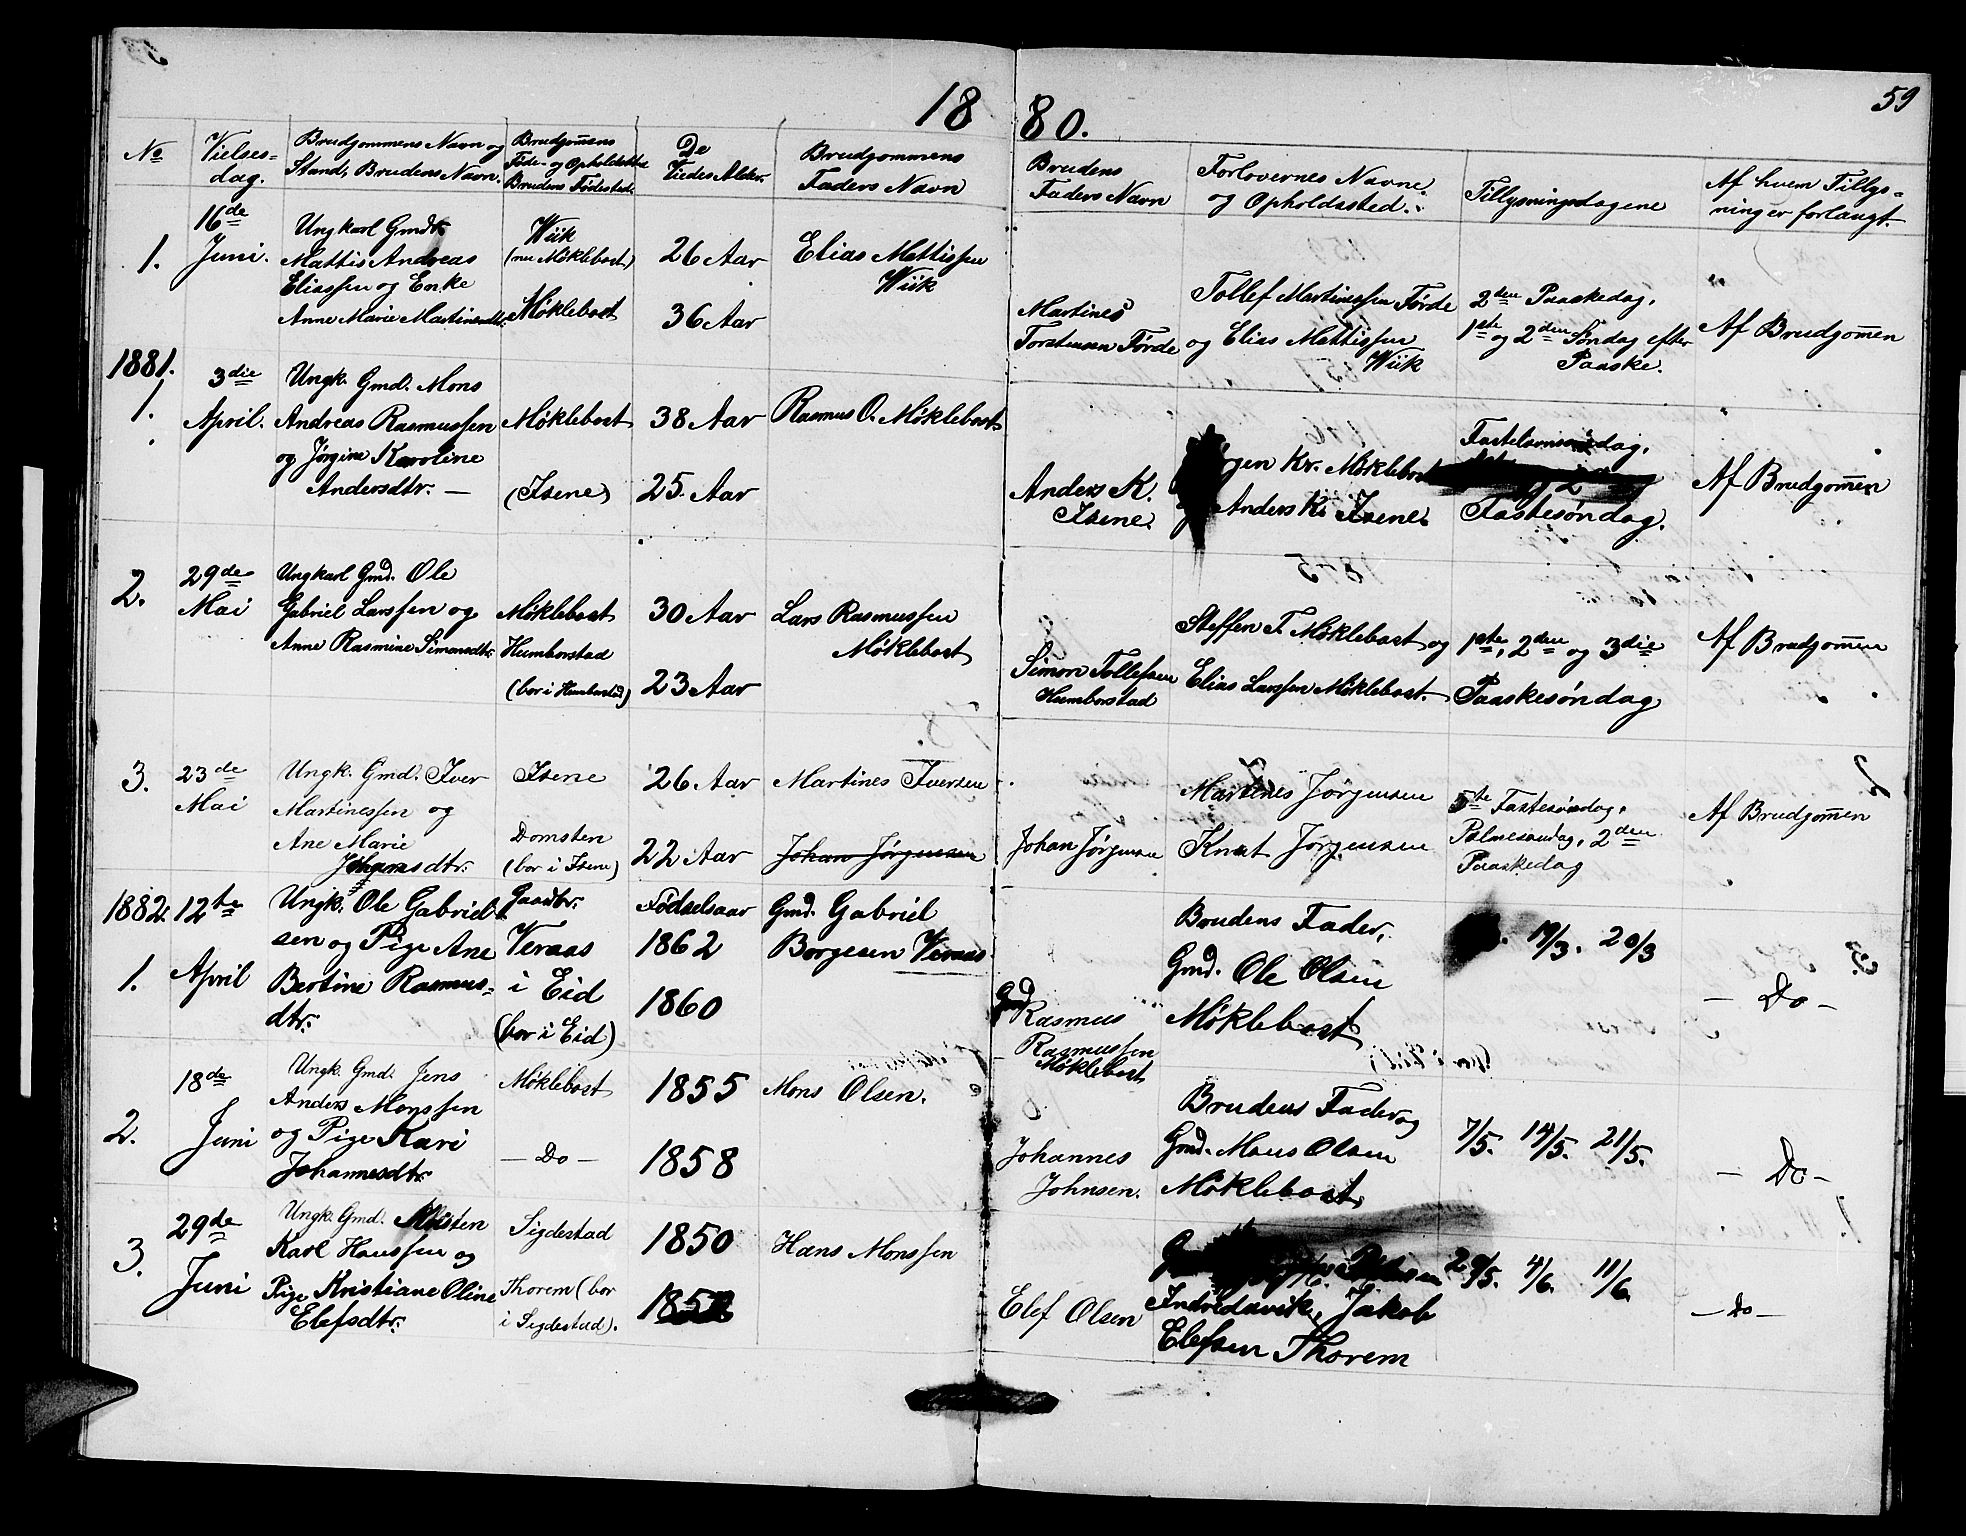 18 80.
59
No
Vielses-
dag.
Brudgommens Navn og
Stand, Brudens Navn.
Brudgom̅ens
Føde- og Opholdssted
Brudens Fødested.
De
Viedes Alder.
Brudgommens
Faders Navn
Brudens
Faders Navn
Forlovernes Navne
og Opholdssted.
Tillysningsdagene
Af hvem Tillys-
ning er forlangt.
1.
16de
Juni.
Ungkarl Gmdk
Mattis Andreas
Eliassen og Enke
Anne Marie Martinesdtr.
Wiik
(nu Møklebost)
Møklebost
26 Aar
36 Aar
Elias Mattissen
Wiik
Martines
Torstensen Førde
Tollef Martinessen Førde
og Elias Mattissen
Wiik
2den Paaskedag,
1ste og 2den Søndag efter
Paaske.
Af Brudgom̅en
1881.
1.
3die
April.
Ungk. Gmd. Mons
Andreas Rasmussen
og Jørgine Karoline
Andersdtr. —
Møklebost
(Isene)
38 Aar
25 Aar
Rasmus O. Møklebost
Anders K.
Isene.
Kr. Møklebost
Anders K. Isene.
Fastelavnssøndag,
Fastesøndag.
Af Brudgom̅en
2.
29de
Mai
Ungkarl Gmd. Ole
Gabriel Larssen og
Anne Rasmine Simonsdtr.
Møklebost
Humborstad
(bor i Humborstad)
30 Aar
23 Aar
Lars Rasmussen
Møklebost
Simon Tollefsen
Humborstad
Steffen T. Møklebost og
Elias Larssen Møklebost.
1ste, 2den og 3die
Paaskesøndag
Af Brudgom̅en
3.
23de
Mai
Ungk. Gmd. Iver
Martinessen og
Ane Marie
Johansdtr.
Isene
Domsten
(bor i Isene)
26 Aar
22 Aar
Martines Iversen
Johan Jørgensen
Johan Jørgensen
Martines Jørgensen
Knut Jørgensen
5te Fastesøndag,
Palmesøndag, 2den
Paaskedag
Af Brudgom̅en
1882.
1.
12te
April
Ungk. Ole Gabriel-
sen og Pige Ane
Bertine Rasmus-
dtr.
Gaardbr.
Veraas
i Eid
(bor i Eid)
Fødselsaar
1862
1860
Gmd. Gabriel
Borgesen Veraas
Gmd
Rasmus
Rasmussen
Møklebost
Brudens Fader,
Gmd. Ole Olsen
Møklebost
19/3. 20/3
— Do —
2.
18de
Juni
Ungk. Gmd. Jens
Anders Monssen
og Pige Kari
Johannesdtr.
Møklebost
— Do —
1855
1858
Mons Olsen.
Johannes
Johnsen.
Brudens Fader og
Gmd. Mons Olsen
Møklebost
7/5. 14/5. 21/5.
— Do —
3.
29de
Juni
Ungk. Gmd.
Karl Hanssen og
Pige Kristiane Oline
Elefsdtr.
Sigdestad
Thorem (bor
i Sigdestad).
1850
Hans Monssen
Elef Olsen
Indredavik, Jakob
Elefsen Thorem
4/6. 11/6.
— Do —